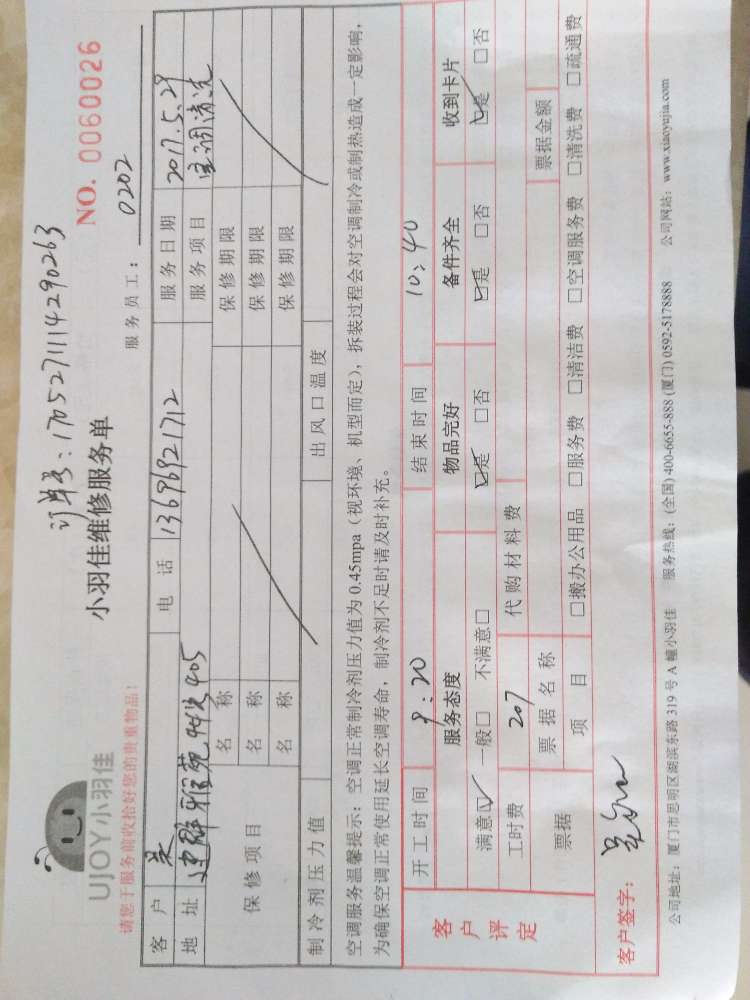 订单号:1705271114290263
UJOY小羽佳
小羽佳维修服务单
NO. 0060026
请您于服务前收拾好您的贵重物品!
服务员工: 0202
客户 吴 电话 13696921712 服务日期 2017.5.29
地址 405 服务项目 空调清洗
保修项目 名称 保修期限
名称 保修期限
名称 保修期限
制冷剂压力值 出风口温度
空调服务温馨提示:空调正常制冷剂压力值为 0.45mpa(视环境、机型而定),拆装过程会对空调制冷或制热造成一定影响,
为确保空调正常使用延长空调寿命,制冷剂不足时请及时补充。
客户评定
开工时间 9:20 结束时间 10:40
服务态度 物品完好 备件齐全 收到卡片
满意☑ 一般□ 不满意□ ☑是 □否 ☑是 □否 ☑是 □否
工时费 207 代购材料费
票据 票据名称 票据金额
项目 □搬办公用品 □服务费 □清洁费 □空调服务费 □清洗费 □疏通费
客户签字:
公司地址:厦门市思明区湖滨东路 319 号 A 幢小羽佳 服务热线:(全国) 400-6655-888 (厦门) 0592-5178888 公司网站:www.xiaoyujia.com